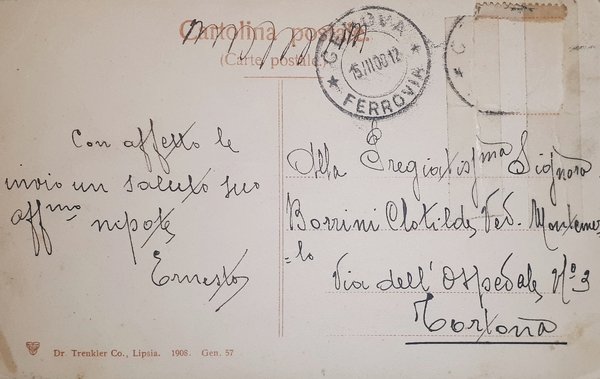 Cartolina postale.
(Carte postale)
GENOVA
15/11 00 12
★ FERROVIA ★
Con affetto le
invio un saluto suo
aff.mo nipote
Ernesto
Alla Egregiatissma Signora
Borrini Clotilde, Ved. Monteme
=lo
Via dell'Ospedale, No 3
Tortona
Dr. Trenkler Co., Lipsia. 1908. Gen. 57